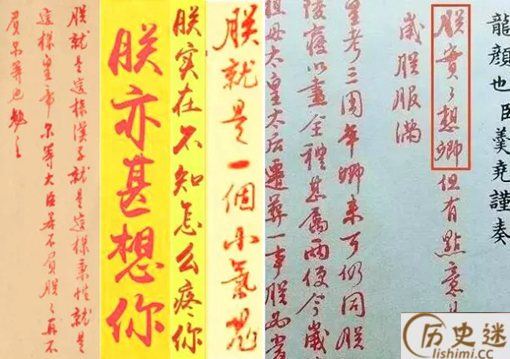 龍顏也臣羹堯謹奏
朕實々想卿但有點意
歲朕服滿
皇考三周年卿来可仍同朕
陵寢以盡全禮甚屬兩便今歲
祖母太皇太后遷葬一事朕
朕就是一個小氣鬼
朕实在不知怎么疼你
朕亦甚想你
朕就是這樣漢子就是這樣秉性就是
這樣皇帝尔等大臣若不負朕朕再不
負尔等也勉之
历史迷
lishimi.cc